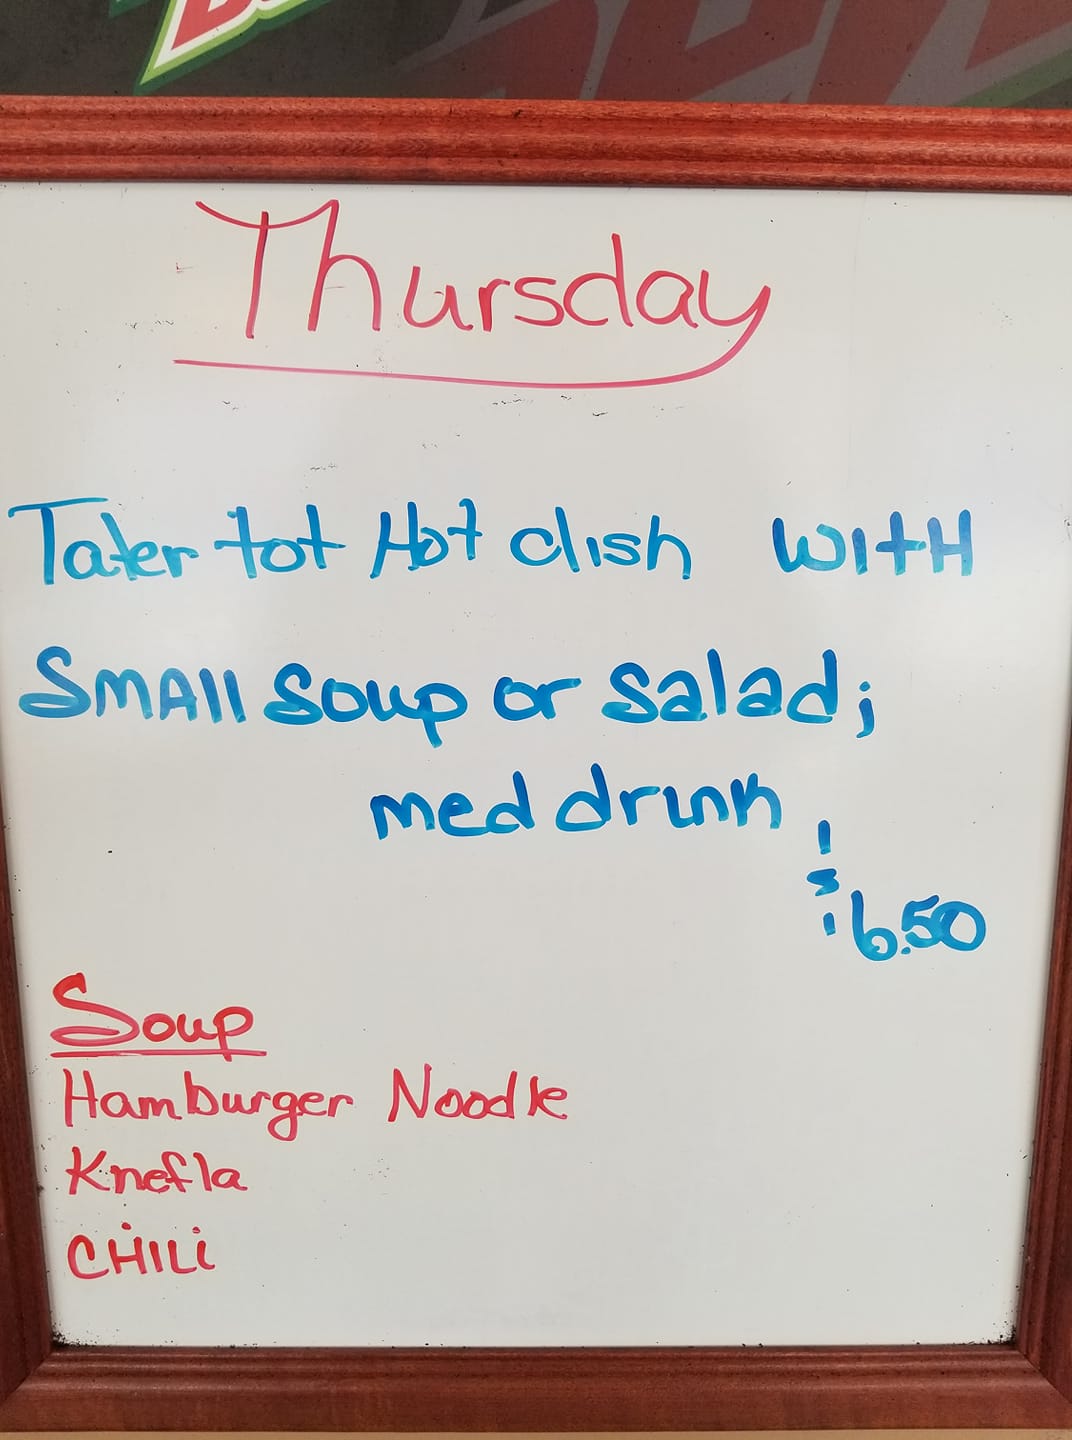 Thursday
Tater tot Hot dish WITH
SMAll Soup or Salad;
med drink
$6.50
Soup
Hamburger Noodle
Knefla
CHILi